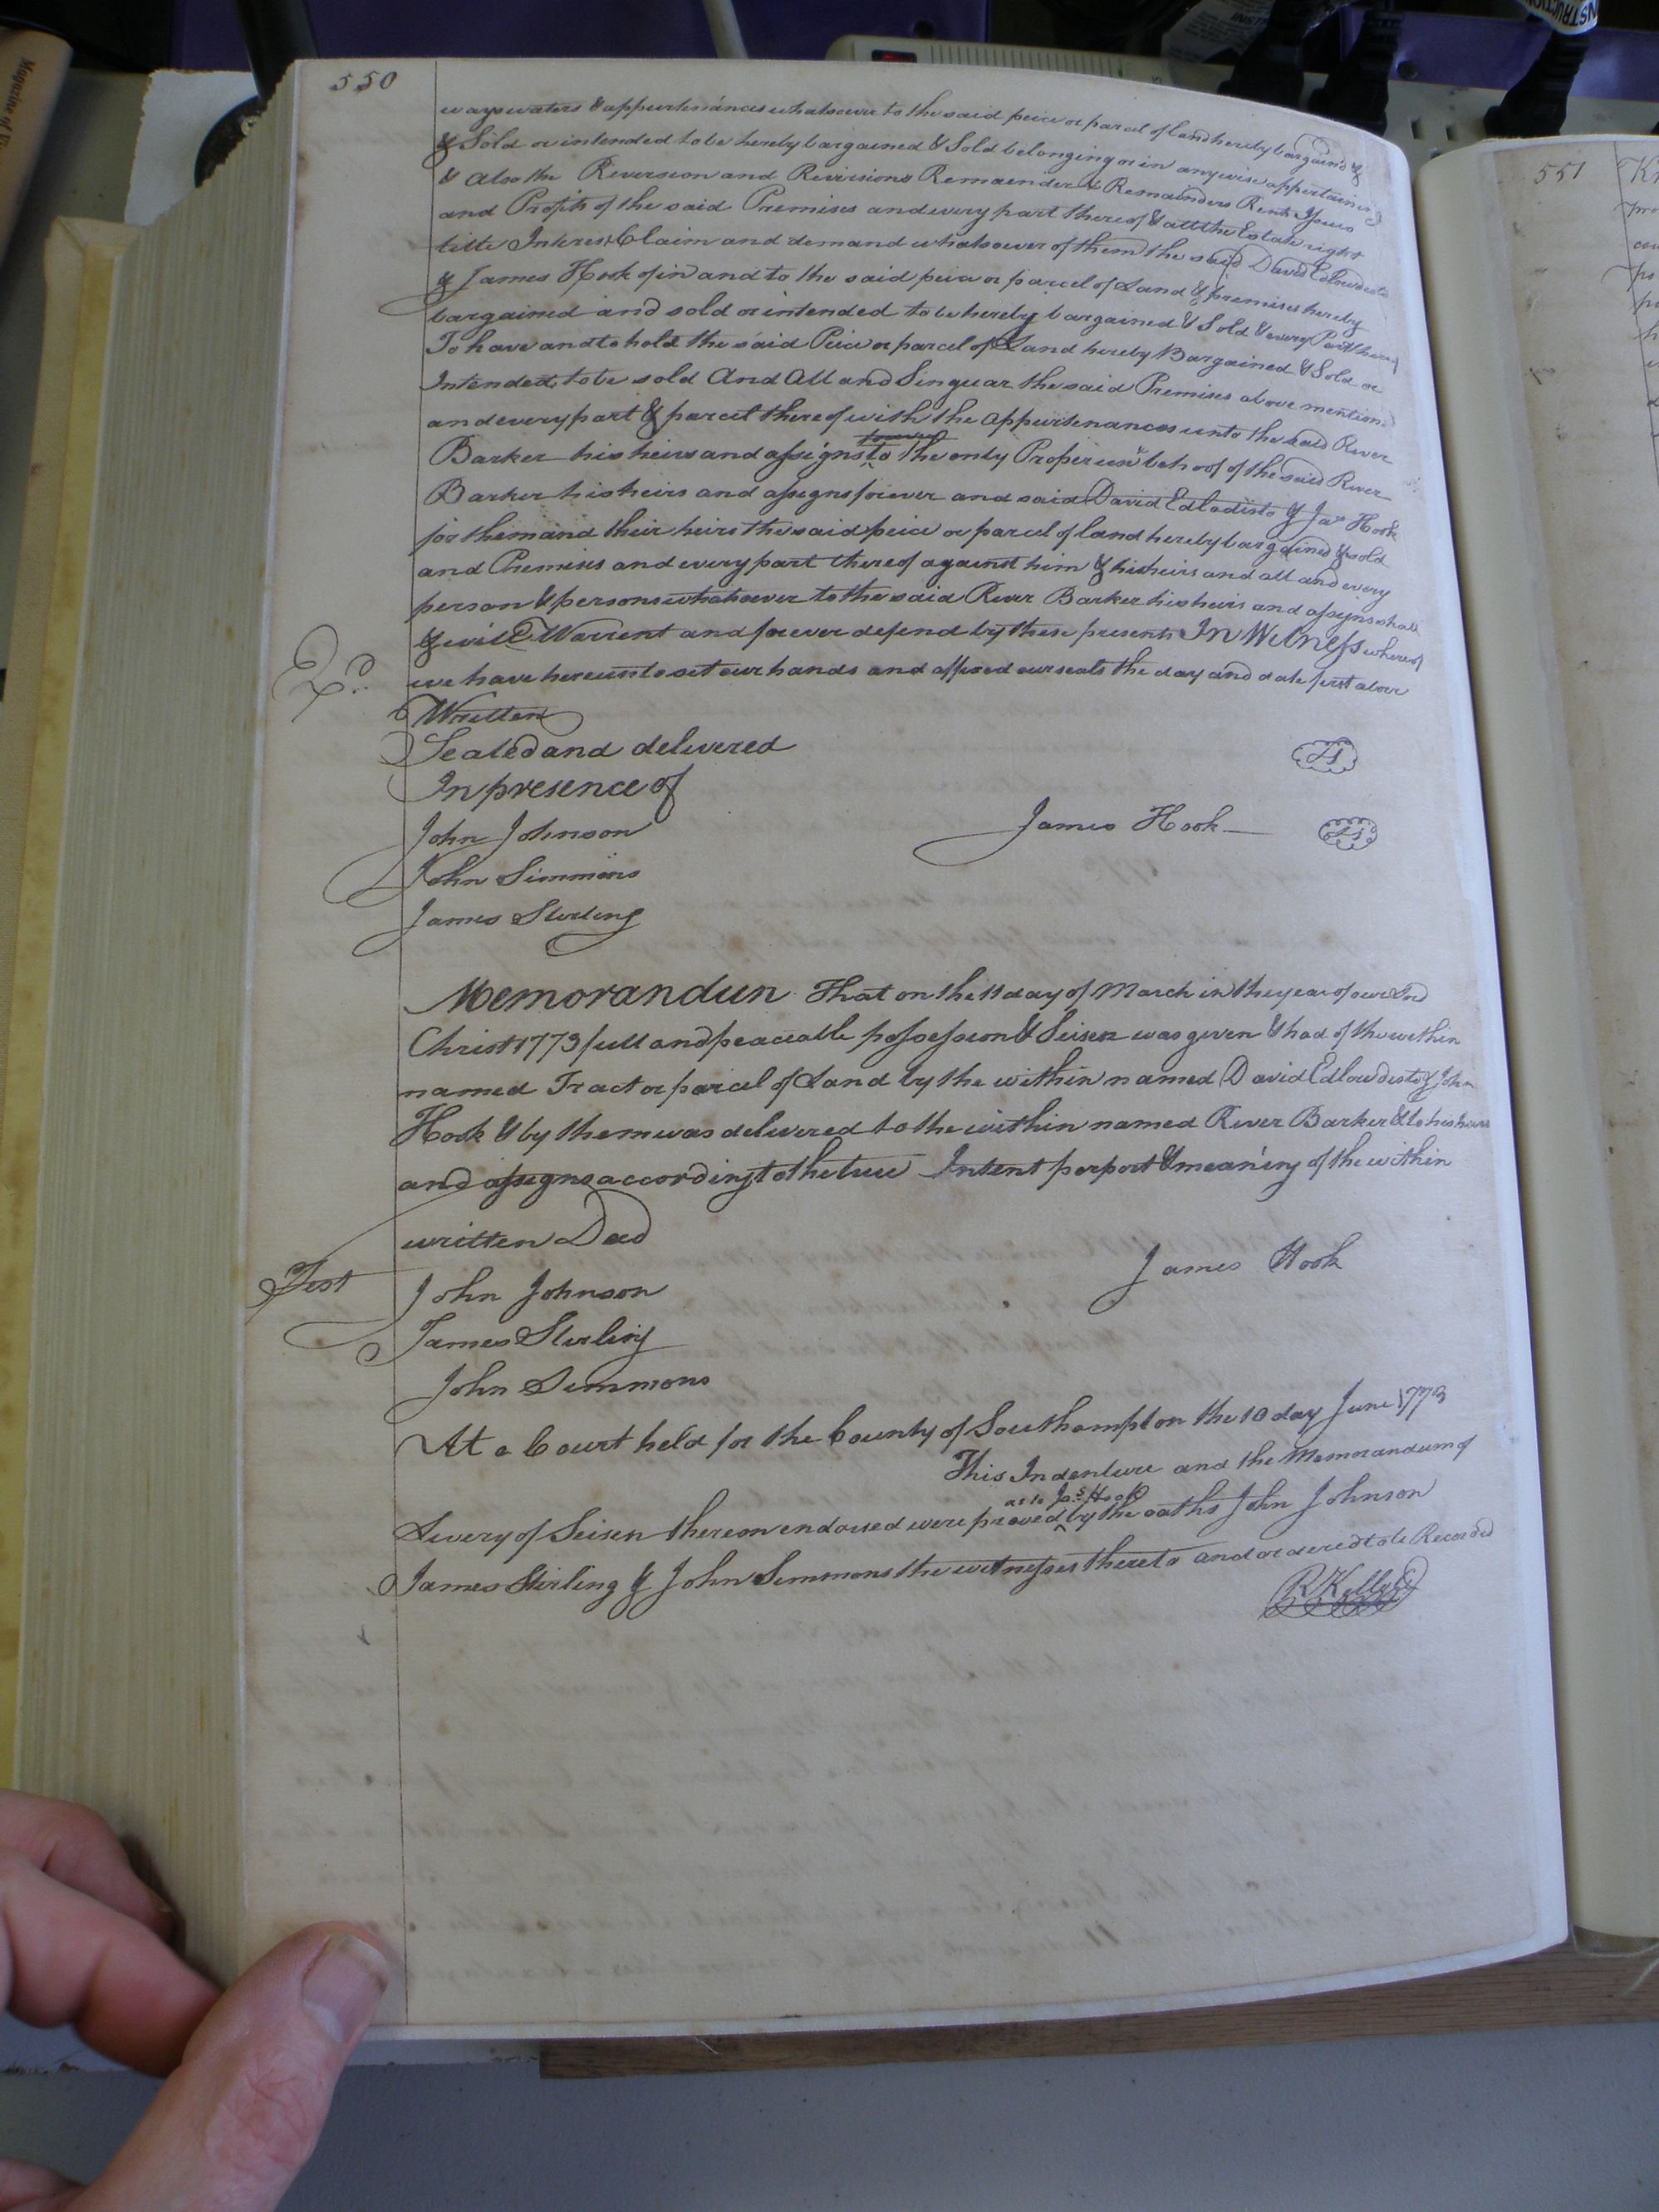 550
ways waters & appurtenances whatsoever to the said peice or parcel of land hereby bargain'd &
& Sold or intended to be hereby bargained & Sold belonging or in anywise appertaining
& also the Reversion and Reversions Remainder & Remainders Rents Issues
and Profits of the said Premises and every part thereof & all the Estate right
title Interest Claim and demand whatsoever of them the said David Edlowdisto
& James Hook of in and to the said peice or parcel of Land & premises hereby
bargained and sold or intended to be hereby bargained & Sold & every Part thereof
To have and to hold the said Peice or parcel of Land hereby Bargained & Sold or
Intended to be sold And All and Singuar the said Premises above mention'd
and every part & parcel thereof with the appurtenances unto the said River
Barker his heirs and assigns forever to the only Proper use & behoof of the said River
Barker his heirs and assigns forever and said David Edladisto & Jas Hook
for them and their heirs the said peice or parcel of land hereby bargained & sold
and Premises and every part thereof against him & his heirs and all and every
person & persons whatsoever to the said River Barker his heirs and assigns shall
& will Warrent and forever defend by these presents In Witness whereof
we have hereunto set our hands and affixed our seals the day and date first above
Written
Sealed and delivered
In presence of
John Johnson
James Hook
John Simmons
James Sterling
Memorandun That on the 11 day of March in the year of our Lord
Christ 1773 full and peaceable possession & Seisen was given & had of the within
named Tract or parcel of Land by the within named David Edlowdisto & John
Hook & by them was delivered to the within named River Barker & to his heirs
and assigns according to the true Intent perport & meaning of the within
written Deed
James Hook
Test
John Johnson
James Sterling
John Simmons
At a Court held for the County of Southampton the 10 day June 1773
This Indenture and the Memorandum of
as to Jas Hook
Livery of Seisen thereon endorsed were proved by the oaths John Johnson
James Stirling & John Simmons the witnesses thereto and ordered to be Recorded
R Kello
551